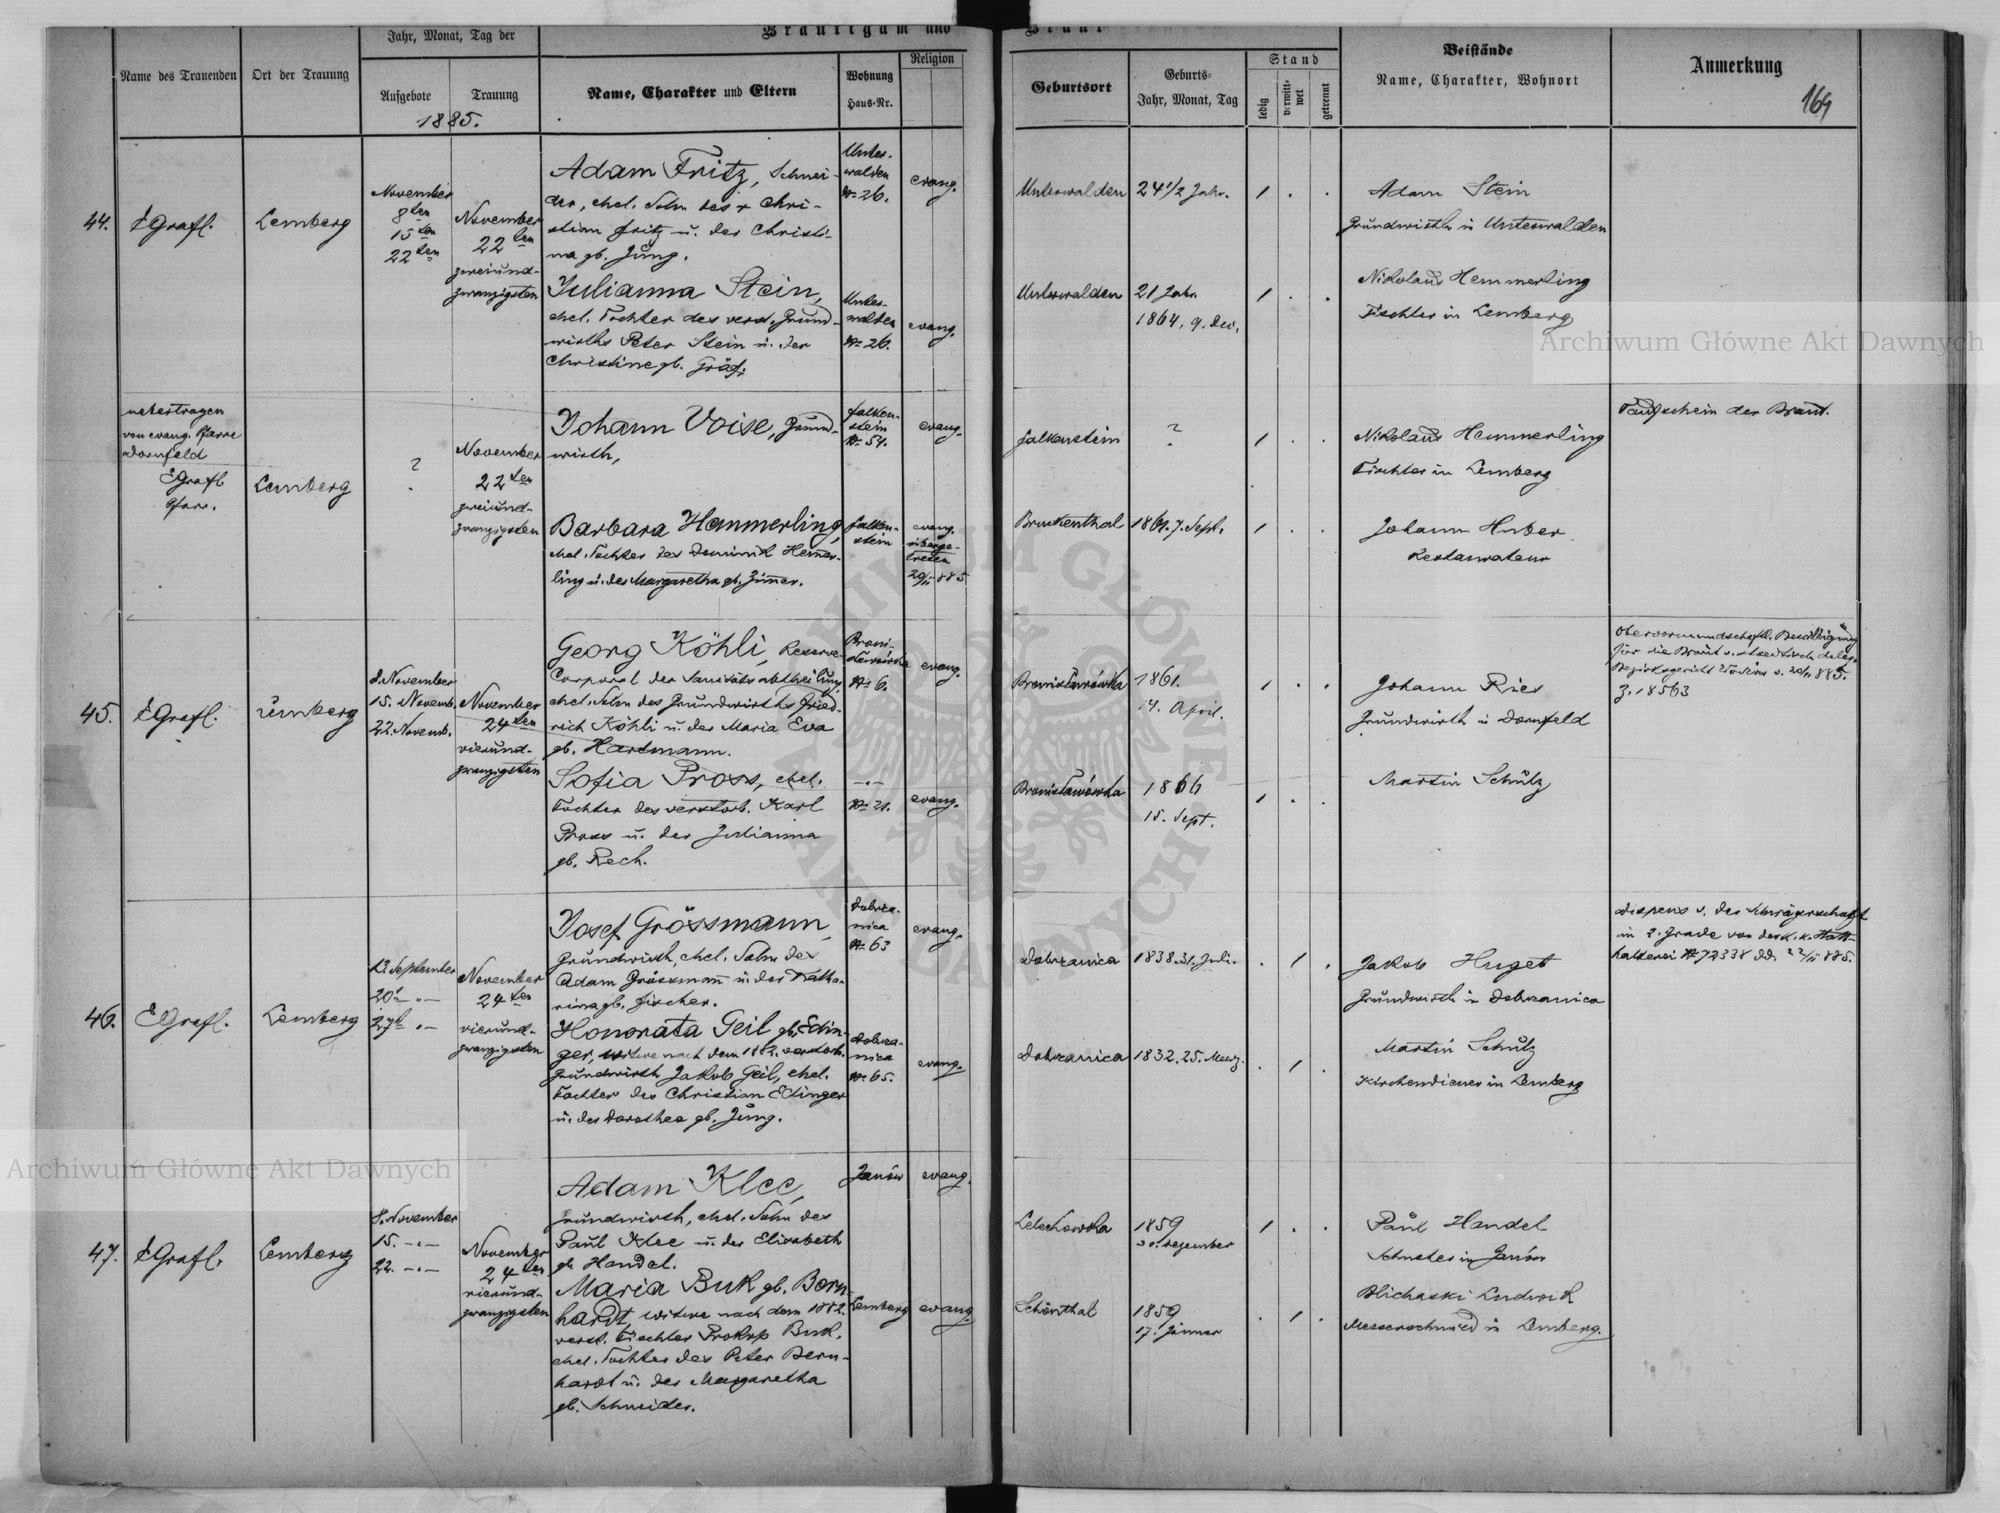 Bräutigam und
Braut
Name des Trauenden
Ort der Trauung
Jahr, Monat, Tag der
Aufgebote
Trauung
1885.
Name, Charakter und Eltern
Wohnung
Haus-Nr.
Religion
Geburtsort
Geburts-
Jahr, Monat, Tag
Stand
ledig
verwitt-
wet
getrennt
Beistände
Name, Charakter, Wohnort
Anmerkung
169
44.
EGrafl.
Lemberg
November
8ten
15ten
22ten
November
22ten
zweiund-
zwanzigsten
Adam Fritz, Schnei-
der, ehel. Sohn des + Chri-
stian Fritz u. der Christi-
na gb. Jung.
Unter-
walden
Nr. 26.
evang.
Unterwalden
24 1/2 Jahr.
1 . .
Adam Stein
Grundwirth in Unterwalden
Julianna Stein,
ehel. Tochter des verst. Grund-
wirths Peter Stein u. der
Christine gb. Gräf.
Unter-
walden
Nr. 26.
evang.
Unterwalden
21 Jahr.
1864, 9. Dec.
1 . .
Nikolaus Hemmerling
Tischler in Lemberg
uebertragen
von evang. Pfarre
Dornfeld
EGrafl
Pfarr.
Lemberg
?
November
22ten
zweiund-
zwanzigsten
Johann Voise, Grund-
wirth,
Falken-
stein
Nr. 54.
evang.
Falkenstein
?
1 . .
Nikolaus Hemmerling
Tischler in Lemberg
Taufschein der Braut.
Barbara Hemmerling,
ehel. Tochter des Dominik Hemer-
ling u. der Margaretha gb. Zimmer.
Falken-
stein
evang.
überge-
treten
20/11 885
Bruckenthal
1861. 7. Sept.
1 . .
Johann Huber
Restaurateur
45.
EGrafl.
Lemberg
8. November
15. Novemb.
22. Novemb.
November
24ten
vierund-
zwanzigsten
Georg Köhli, Reserve-
Corporal der Sanitätsabtheilung,
ehel. Sohn des Grundwirths Fried-
rich Köhli u. der Maria Eva
gb. Hartmann.
Broni-
sławówka
Nr. 6.
evang.
Bronisławówka
1861.
14. April.
1 . .
Johann Ries
Grundwirth in Dornfeld
Obervormundschaftl. Bewilligung
für die Braut v. deleg.
Bezirksgericht v. 885.
Z. 18563
Sofia Pross, ehel.
Tochter des verstorb. Karl
Pross u. der Julianna
gb. Rech.
-"-
Nr. 21.
evang.
Bronisławówka
1866
15. Sept.
1 . .
Martin Schütz
46.
EGrafl.
Lemberg
13. September
20t -"-
27t "-
November
24ten
vierund-
zwanzigsten
Josef Grössmann,
Grundwirth, ehel. Sohn des
Adam Grössmann u. der Katha-
rina gb. Fischer.
Dobrza-
nica
Nr. 63
evang.
Dobrzanica
1838. 31. Juli.
. 1 .
Jakob Huget
Grundwirth in Dobrzanica
Dispens v. der Schwägerschaft
im 2. Grade von der k. k. Statt-
halterei Nr. 72338 dd. 22/11 885.
Honorata Geil gb. Edin-
ger, Witwe nach dem 1882. verstorb.
Grundwirth Jakob Geil, ehel.
Tochter des Christian Edinger
u. der Dorothea gb. Jung.
Dobrza-
nica
Nr. 65.
evang.
Dobrzanica
1832, 25. Maerz.
. 1 .
Martin Schütz
Kirchendiener in Lemberg
47.
EGrafl.
Lemberg
8. November
15. -"-
22. -"-
November
24ten
vierund-
zwanzigsten
Adam Klee,
Grundwirth, ehel. Sohn des
Paul Klee u. der Elisabeth
gb. Handel.
Janów
evang.
Lelechowka
1859
20. Dezember
1 . .
Paul Handel
Schuster in Janów
Maria Buk gb. Bern-
hardt, Witwe nach dem 1882.
verst. Tischler Prokop Buk,
ehel. Tochter des Peter Bern-
hardt u. der Margaretha
gb. Schneider.
Lemberg
evang.
Schönthal
1859
17. Jänner
. 1 .
Blichaski Ludwik
Messerschmied in Lemberg.
Archiwum Główne Akt Dawnych
Archiwum Główne Akt Dawnych
ARCHIWUM GŁÓWNE
AKT DAWNYCH